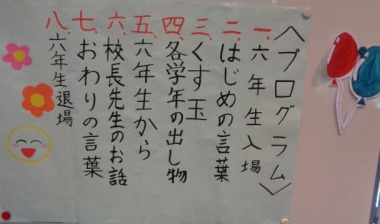 〈プログラム〉
一.六年生入場
二.はじめの言葉
三.くす玉
四.各学年の出し物
五.六年生から
六.校長先生のお話
七.おわりの言葉
八.六年生退場